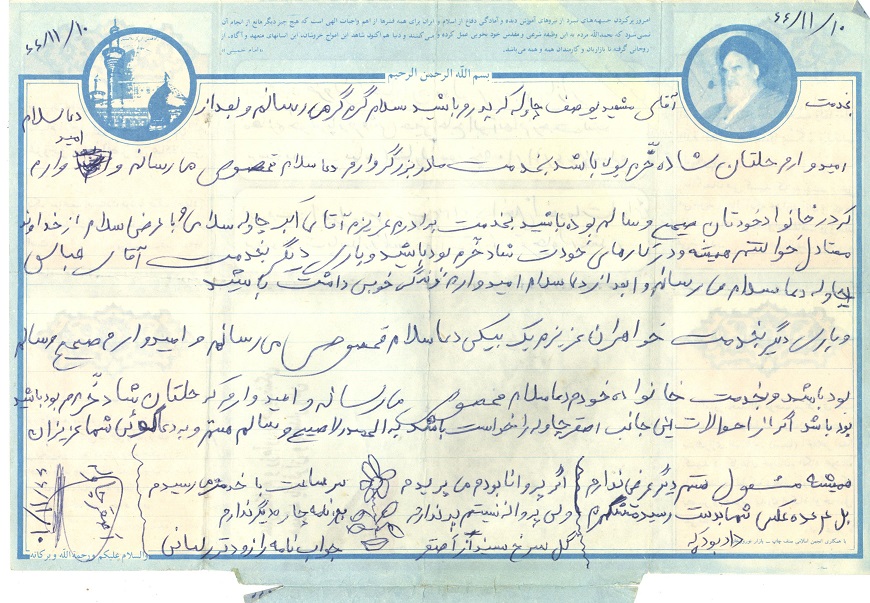 ۶۶/۱۱/۱۰
۶۶/۱۱/۱۰
امروز پرکردن جبهه‌های نبرد از نیروهای آموزش دیده و آمادگی دفاع از اسلام و ایران برای همه قشرها از اهم واجبات الهی است که هیچ چیز دیگر مانع از انجام آن
نمی‌شود که بحمدالله مردم به این وظیفه شرعی و مقدس خود بخوبی عمل کرده و می‌کنند و دنیا هم اکنون شاهد این امواج خروشان، این انسانهای متعهد و آگاه، از
روحانی گرفته تا بازاریان و کارمندان همه و همه می‌باشد.
«امام خمینی»
بسم الله الرحمن الرحیم
بخدمت آقای یوصف چاوله که پدرم باشید سلام گرم گرم می رسانم و بعد از دعا سلام
امید
امید وارم حلتان شاد خرّم بوده باشد بخدمت مادر بزرگوارم دعا سلام مخصوص می رسانم و وارم
که در خانواد خودتان صحیح و سالم بوده باشید بخدمت برادرم عزیزم آقای اکبر چاوله سلامی با عرض سلام از خداوند
خواستم همیشه و در کارهای خودت شاد خرم بود باشید و باری دیگر بخدمت آقای عباس
چاوله دعا سلام می رسانم و ابعد از دعا سلام امید وارم زندگی خوبی داشت باشید
و باری دیگر بخدمت خواهران عزیزم یک بیکی دعا سلام مخصوص می رسانم و امید وارم صحیح و سالم
بود باشد و بخدمت خانواده خودم دعا سلام مخصوص می رسانم و امید وارم که حلتان شاد خرّم بود باشید
بود باشد اگر از احوالات این جانب اصغر چاوله را خواست باشید به الحمدلا صحیح و سالم هستم و به دعا گوئی شما عزیزان
همیشه مشغول هستم دیگر عرضی ندارم
عکس شما بدست رسید متشکرم
داد بود که
اگر پروانا بودم می پریدم
ولی پروانه نیستم پر ندارم
گل سرخ سفند از اصغر
سر ساعت با خدمت می رسیدم
بجز نامه چاره دیگر ندارم
جواب نامه را زود تر رسانی
اصغر چاوله
۶۶/۱۱/۱۰
والسلام علیکم ورحمة الله و برکاته
با همکاری انجمن اسلامی صنف چاپ - بازار